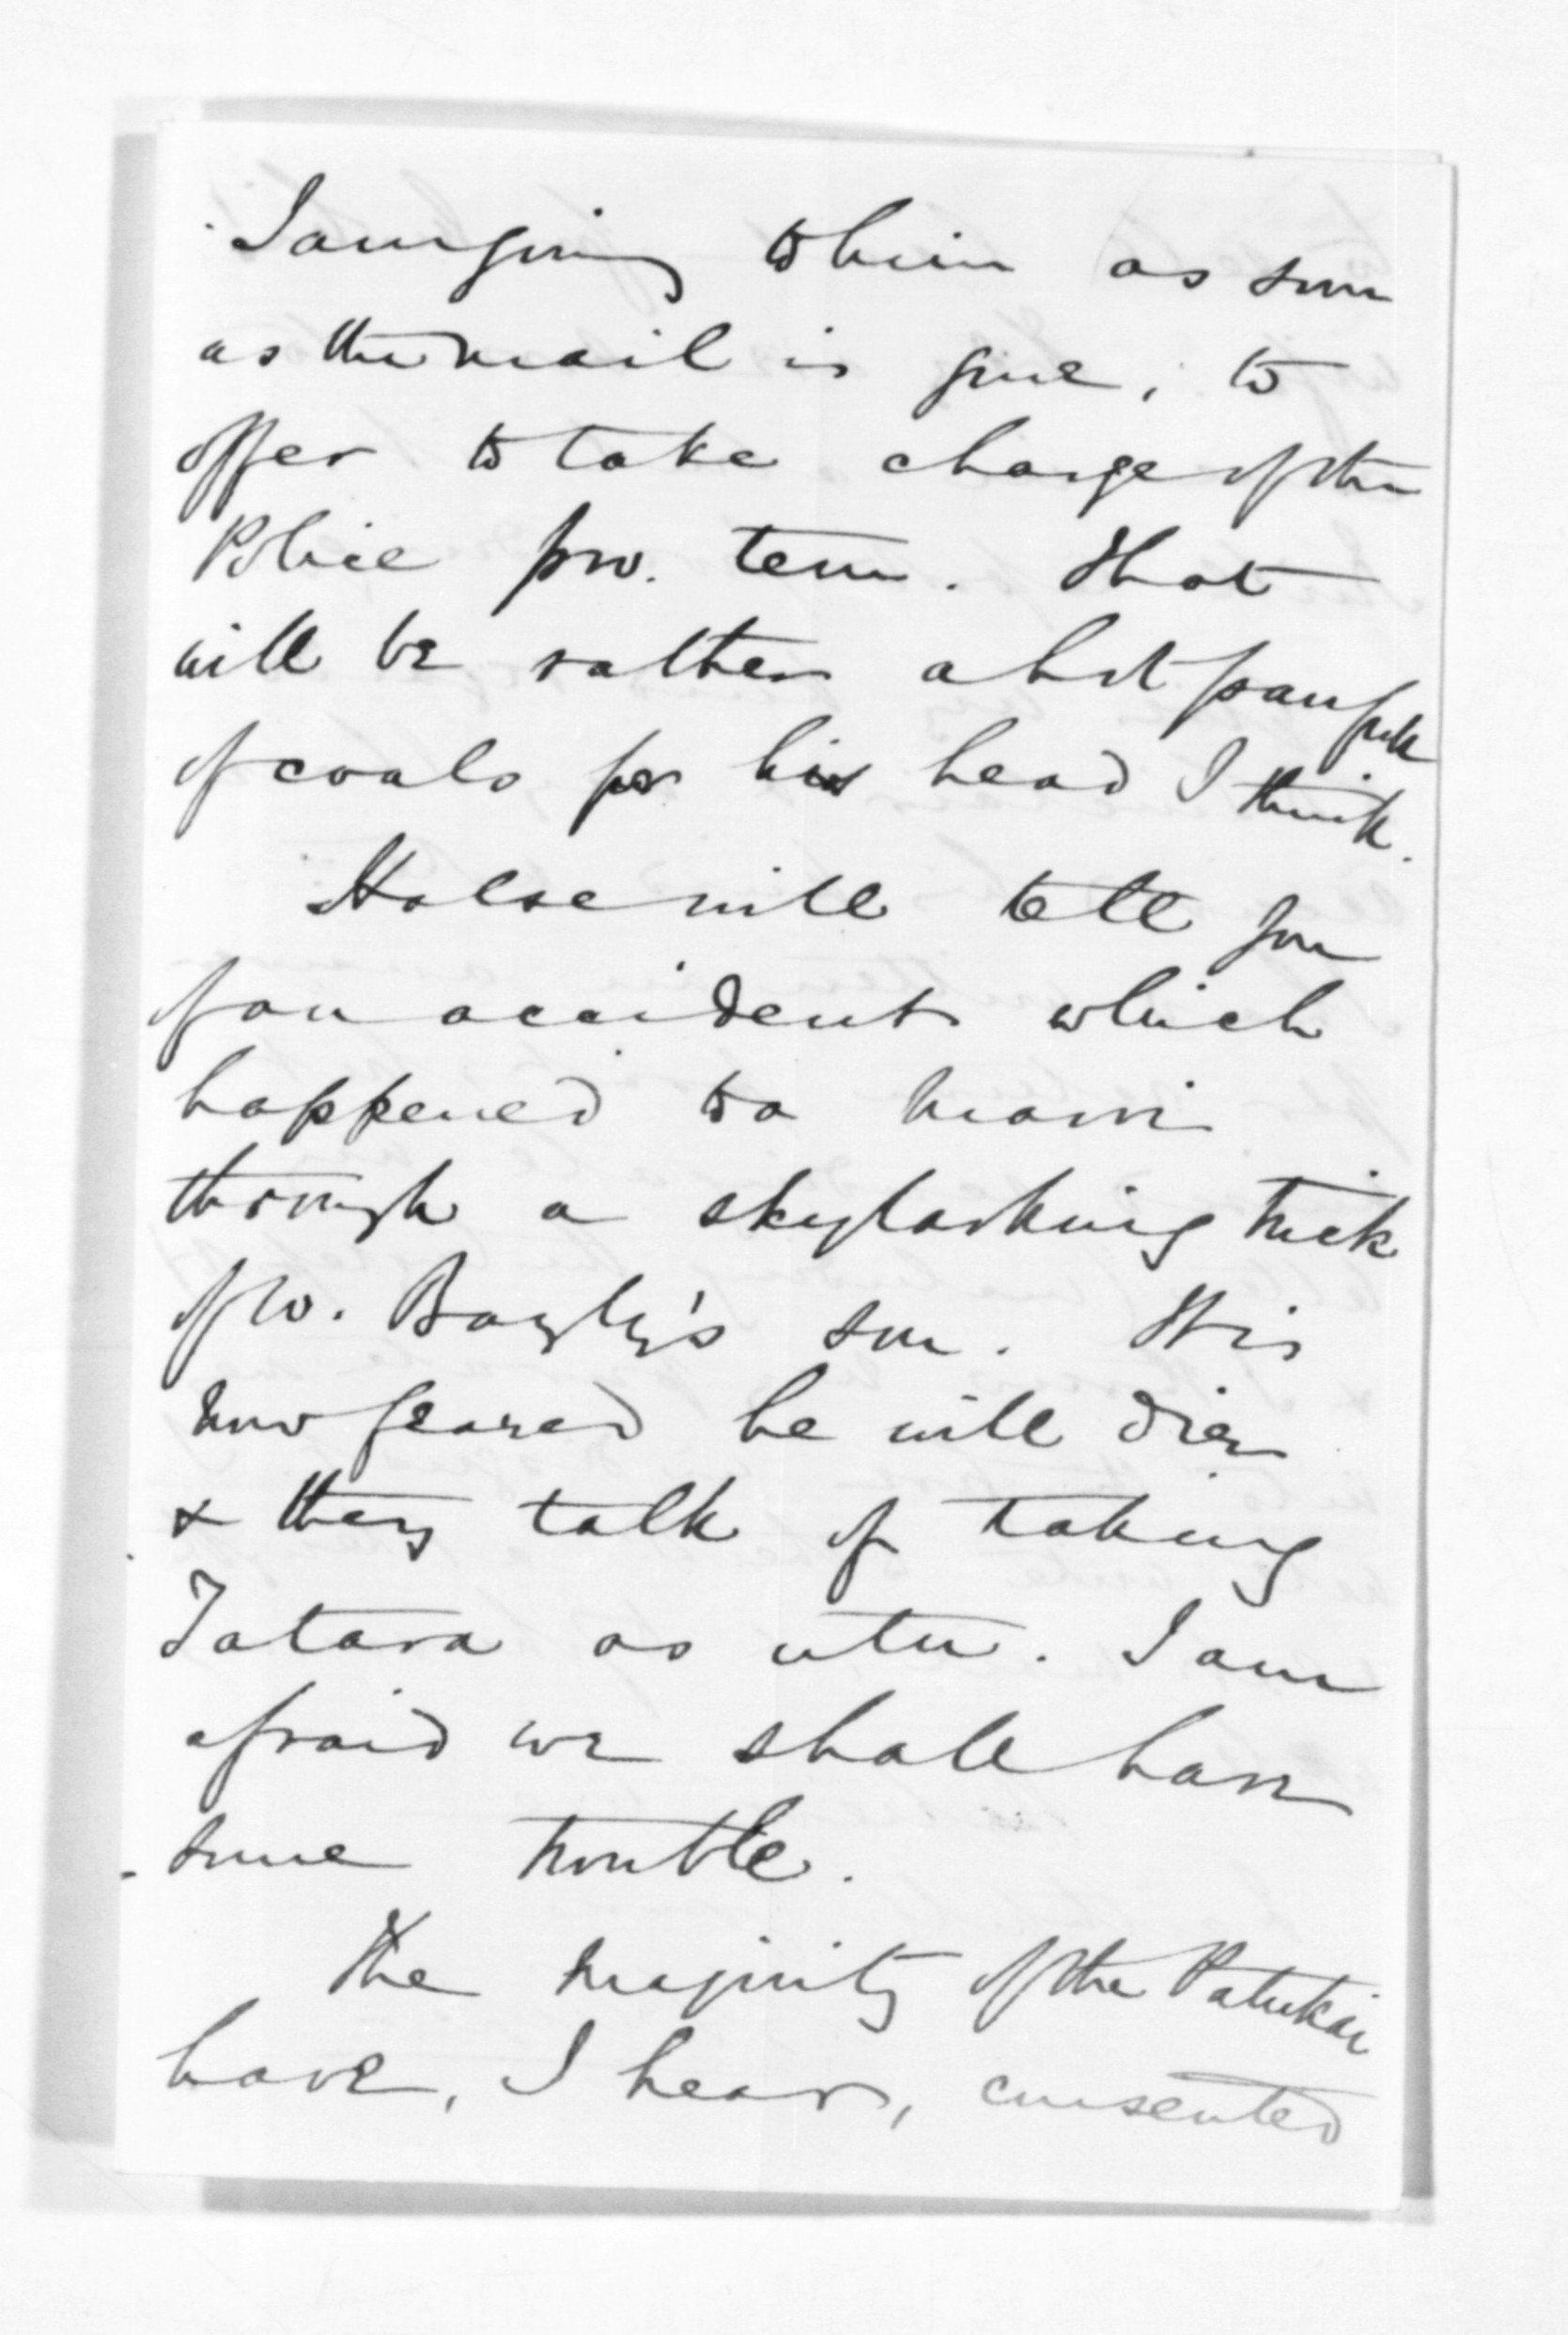 I am going to him as soon
as the mail is gone, to
offer to take charge of the
Police pro. tem. That
will be rather a hot pan full
of coals for his head I think.
Halse will tell you
of an accident which
happened to a maori
through a skylarking trick
of W. Bayly's son. It is
now feared he will die
& they talk of taking
Tatara as utu. I am
afraid we shall have
some trouble.
The majority of the Patukai
have, I hear, consented